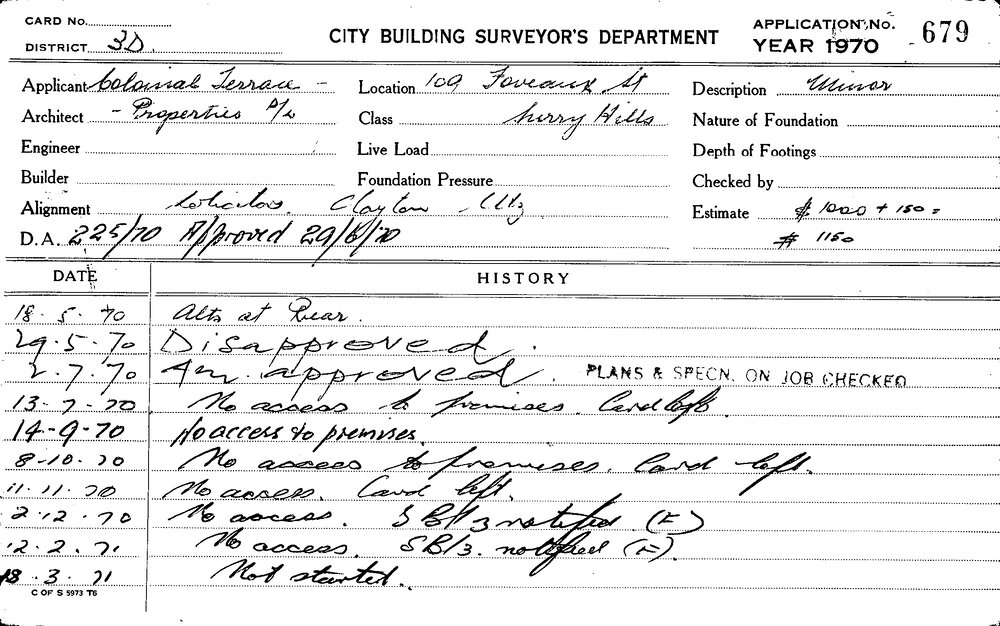 CARD No.
DISTRICT 3D.
CITY BUILDING SURVEYOR'S DEPARTMENT
APPLICATION No. 679
YEAR 1970
Applicant Colonial Terrace -
Location 109 Foveaux St
Description Minor
Architect - Properties P/L
Class Surry Hills
Nature of Foundation
Engineer
Live Load
Depth of Footings
Builder
Foundation Pressure
Checked by
Alignment Solicitors. Clayton Utz
Estimate $ 1000 + 150 =
D.A. 225/70 Approved 29/6/70
$ 1150
DATE
HISTORY
18.5.70 Alts at Rear.
29.5.70 Disapproved.
2.7.70 Am. approved. PLANS & SPECN. ON JOB CHECKED
13-7-70 No access to premises. Card left.
14-9-70 No access to premises.
8-10-70 No access to premises. Card left.
11.11.70 No access. Card left.
2.12.70 No access. SB/3 notified (F)
12.2.71 No access. SB/3. notified (F).
18.3.71 Not started.
C OF S 5973 T6